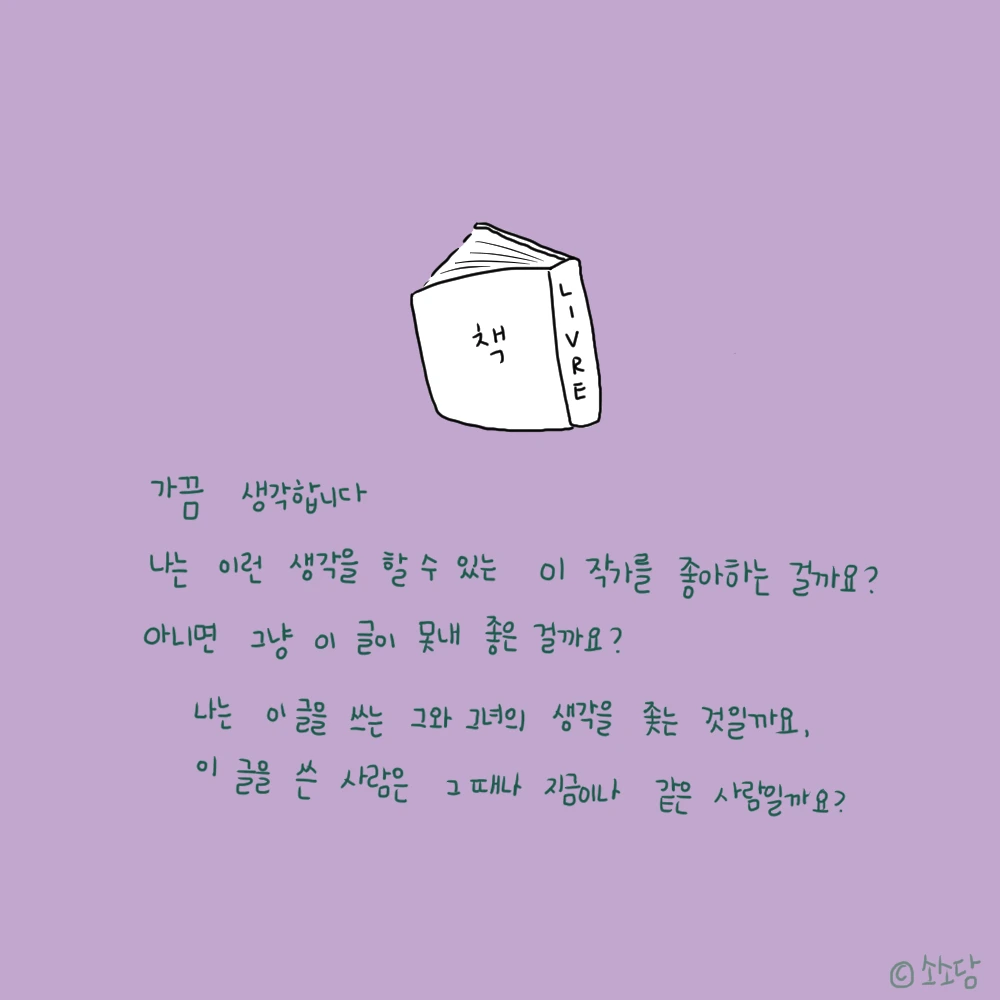 책
LIVRE
가끔 생각합니다
나는 이런 생각을 할 수 있는 이 작가를 좋아하는 걸까요?
아니면 그냥 이 글이 못내 좋은 걸까요?
나는 이 글을 쓰는 그와 그녀의 생각을 좇는 것일까요,
이 글을 쓴 사람은 그 때나 지금이나 같은 사람일까요?
©소소담